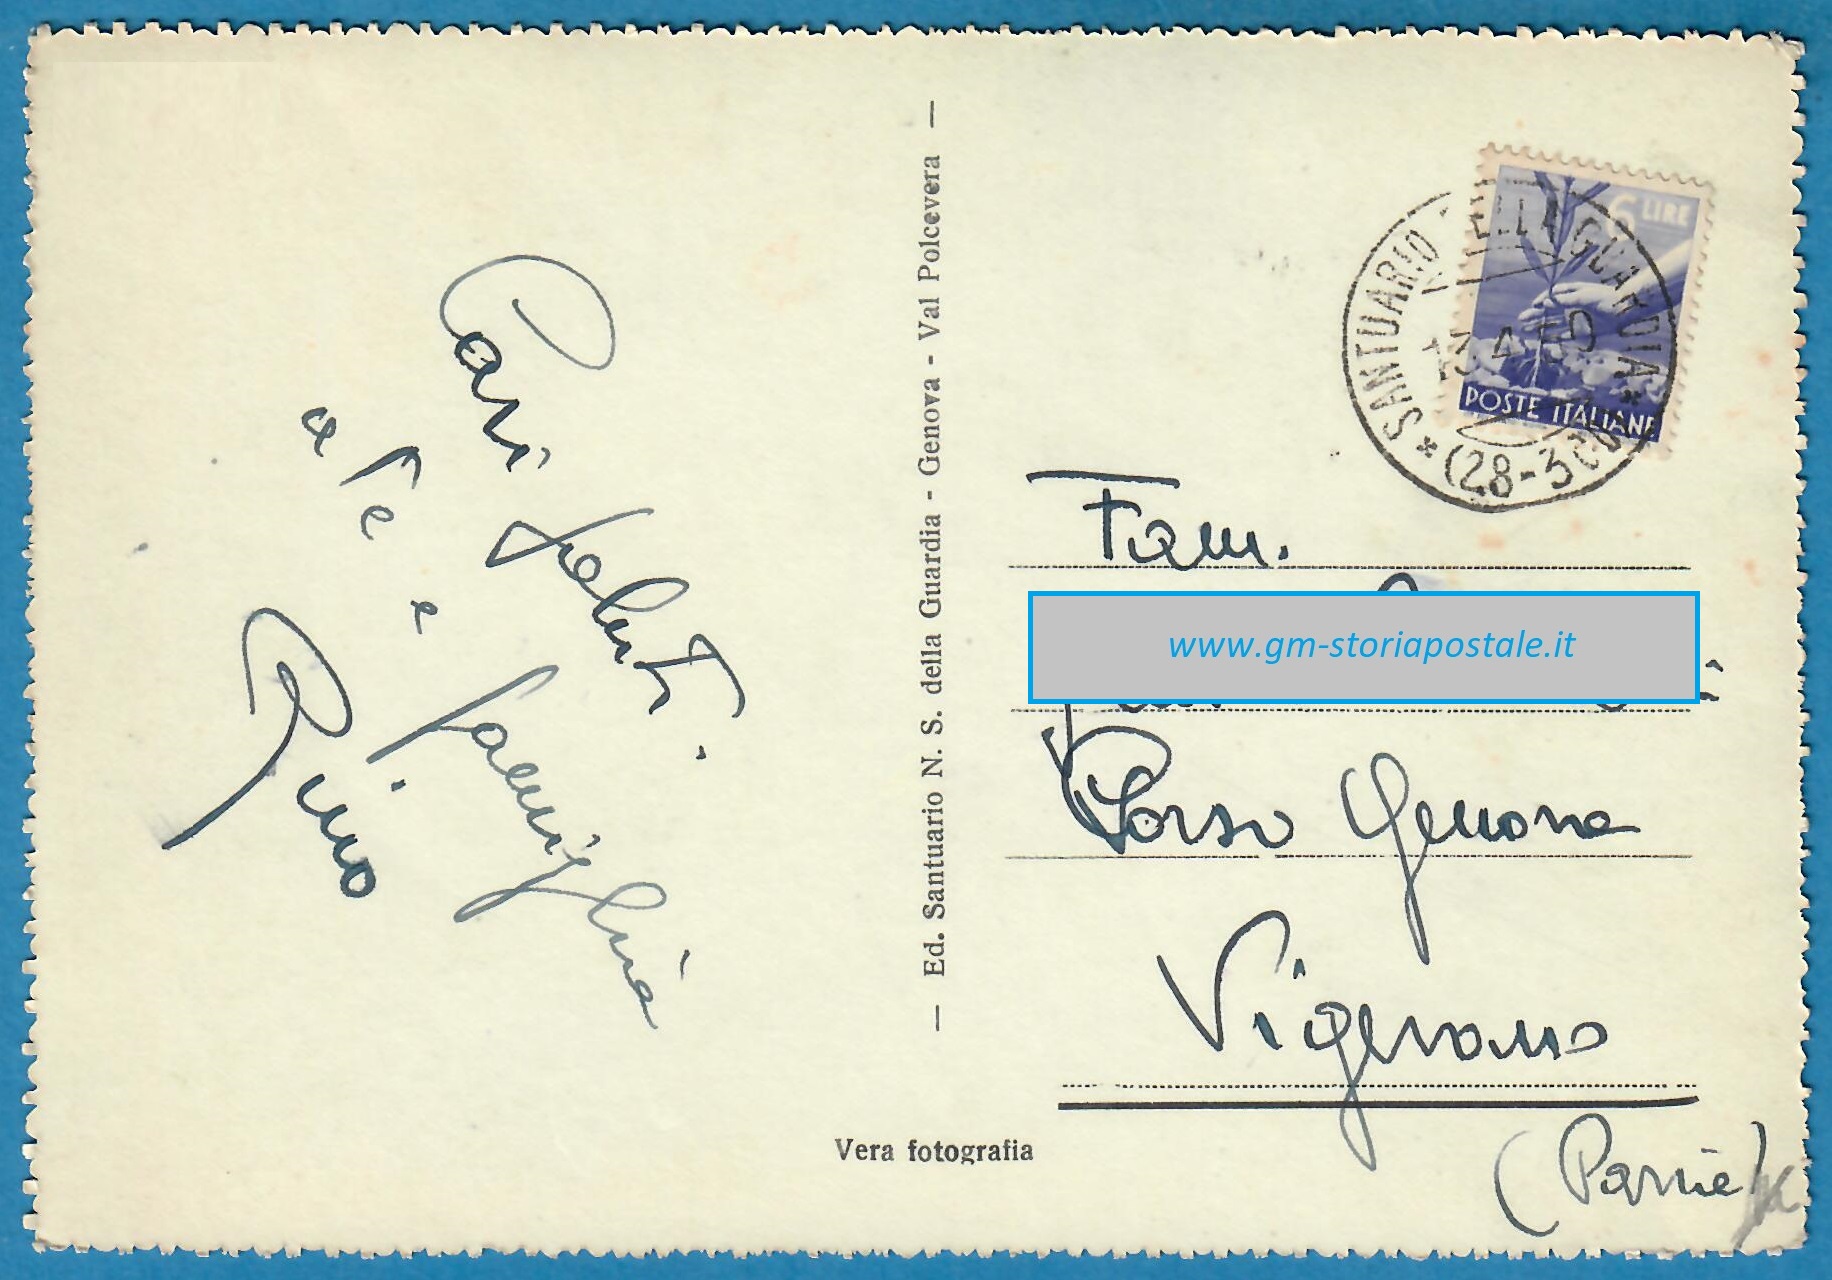 Cari saluti
a te e famiglia
Gino
— Ed. Santuario N. S. della Guardia - Genova - Val Polcevera —
Vera fotografia
6 LIRE
POSTE ITALIANE
* SANTUARIO DELLA GUARDIA *
4 50
(28-3
Fam.
www.gm-storiapostale.it
Corso Genova
Vigevano
(Pavia)